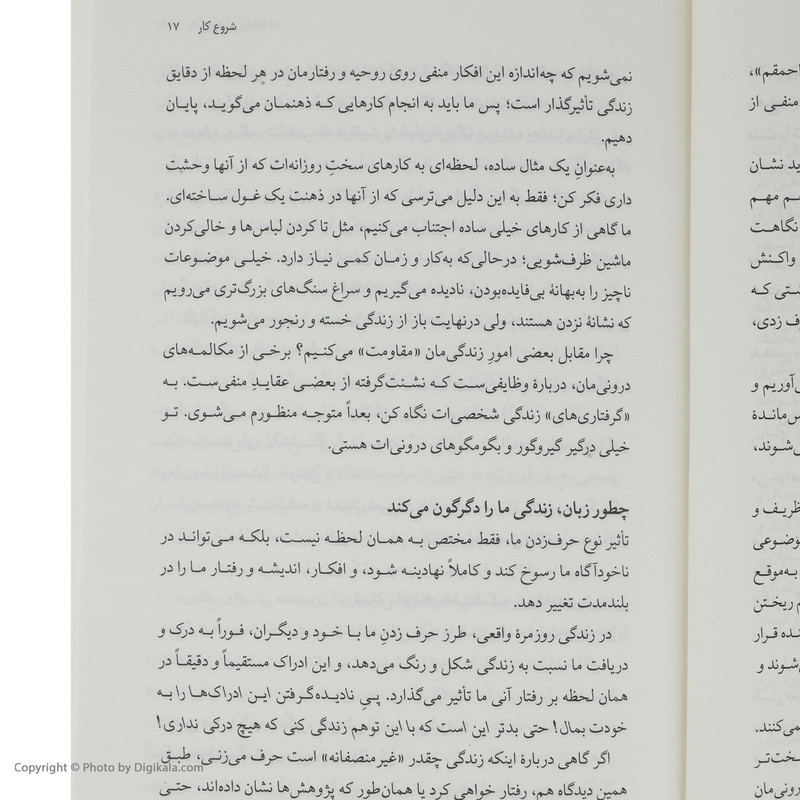 شروع کار ۱۷
نمی‌شویم که چه‌اندازه این افکار منفی روی روحیه و رفتارمان در هر لحظه از دقایق
زندگی تأثیرگذار است؛ پس ما باید به انجام کارهایی که ذهنمان می‌گوید، پایان
دهیم.
به‌عنوانِ یک مثال ساده، لحظه‌ای به کارهای سختِ روزانه‌ات که از آنها وحشت
داری فکر کن؛ فقط به این دلیل می‌ترسی که از آنها در ذهنت یک غول ساخته‌ای.
ما گاهی از کارهای خیلی ساده اجتناب می‌کنیم، مثل تا کردن لباس‌ها و خالی‌کردن
ماشین ظرف‌شویی؛ درحالی‌که به‌کار و زمان کمی نیاز دارد. خیلی موضوعات
ناچیز را به‌بهانهٔ بی‌فایده‌بودن، نادیده می‌گیریم و سراغ سنگ‌های بزرگ‌تری می‌رویم
که نشانهٔ نزدن هستند، ولی درنهایت باز از زندگی خسته و رنجور می‌شویم.
چرا مقابل بعضی امورِ زندگی‌مان «مقاومت» می‌کنیم؟ برخی از مکالمه‌های
درونی‌مان، دربارهٔ وظایفی‌ست که نشئت‌گرفته از بعضی عقایدِ منفی‌ست. به
«گرفتاری‌های» زندگی شخصی‌ات نگاه کن، بعداً متوجه منظورم می‌شوی. تو
خیلی درگیر گیروگور و بگومگوهای درونی‌ات هستی.
چطور زبان، زندگی ما را دگرگون می‌کند
تأثیر نوع حرف‌زدن ما، فقط مختص به همان لحظه نیست، بلکه می‌تواند در
ناخودآگاه ما رسوخ کند و کاملاً نهادینه شود، و افکار، اندیشه و رفتار ما را در
بلندمدت تغییر دهد.
در زندگی روزمرهٔ واقعی، طرز حرف زدنِ ما با خود و دیگران، فوراً به درک و
دریافت ما نسبت به زندگی شکل و رنگ می‌دهد، و این ادراک مستقیماً و دقیقاً در
همان لحظه بر رفتار آنی ما تأثیر می‌گذارد. پیِ نادیده‌گرفتن این ادراک‌ها را به
خودت بمال! حتی بدتر این است که با این توهم زندگی کنی که هیچ درکی نداری!
اگر گاهی دربارهٔ اینکه زندگی چقدر «غیرمنصفانه» است حرف می‌زنی، طبق
همین دیدگاه هم، رفتار خواهی کرد یا همان‌طور که پژوهش‌ها نشان داده‌اند، حتی
احمقم»،
منفی از
نشان
هم مهم
نگاهت
واکنش
که
زدی،
و
ظریف و
به‌موقع
ریختن
قرار
و
می‌کنند.
Copyright © Photo by Digikala.com